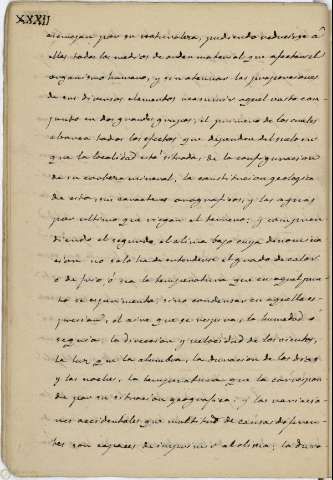 XXXII
asemejan por su naturaleza, pudiendo reducirse á
ellas todos los medios de orden material que afectan el
organismo humano, y sin atender las proporciones
de sus diversos elementos reasumir aquel vasto con
junto en dos grandes grupos; el primero de los cuales
abarca todos los efectos que dependen del suelo en
que la localidad está situada, de la configuracion
de su corteza mineral, la constitucion geologica
de esta, sus caracteres orograficos, y las aguas
por ultimo que riegan el terreno; y compren
diendo el segundo, el clima bajo cuya denomina
cion no solo ha de entenderse el grado de calor
ó de frio, ó sea la temperatura que en aquel pun
to se esperimenta; sino condensar en aquella es
presion, el aire que se respira, la humedad ó
sequia, la direccion y velocidad de los vientos,
la luz que la alumbra, la duracion de los dias
y las noches, la temperatura que la correspon
de por su situacion geografica; y las variacio
nes accidentales que multitud de causas diferen
tes son capaces de imprimir ó abolirla; la dura